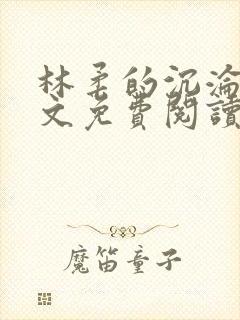 林柔的沉淪
文免費閱讀
魔笛童子